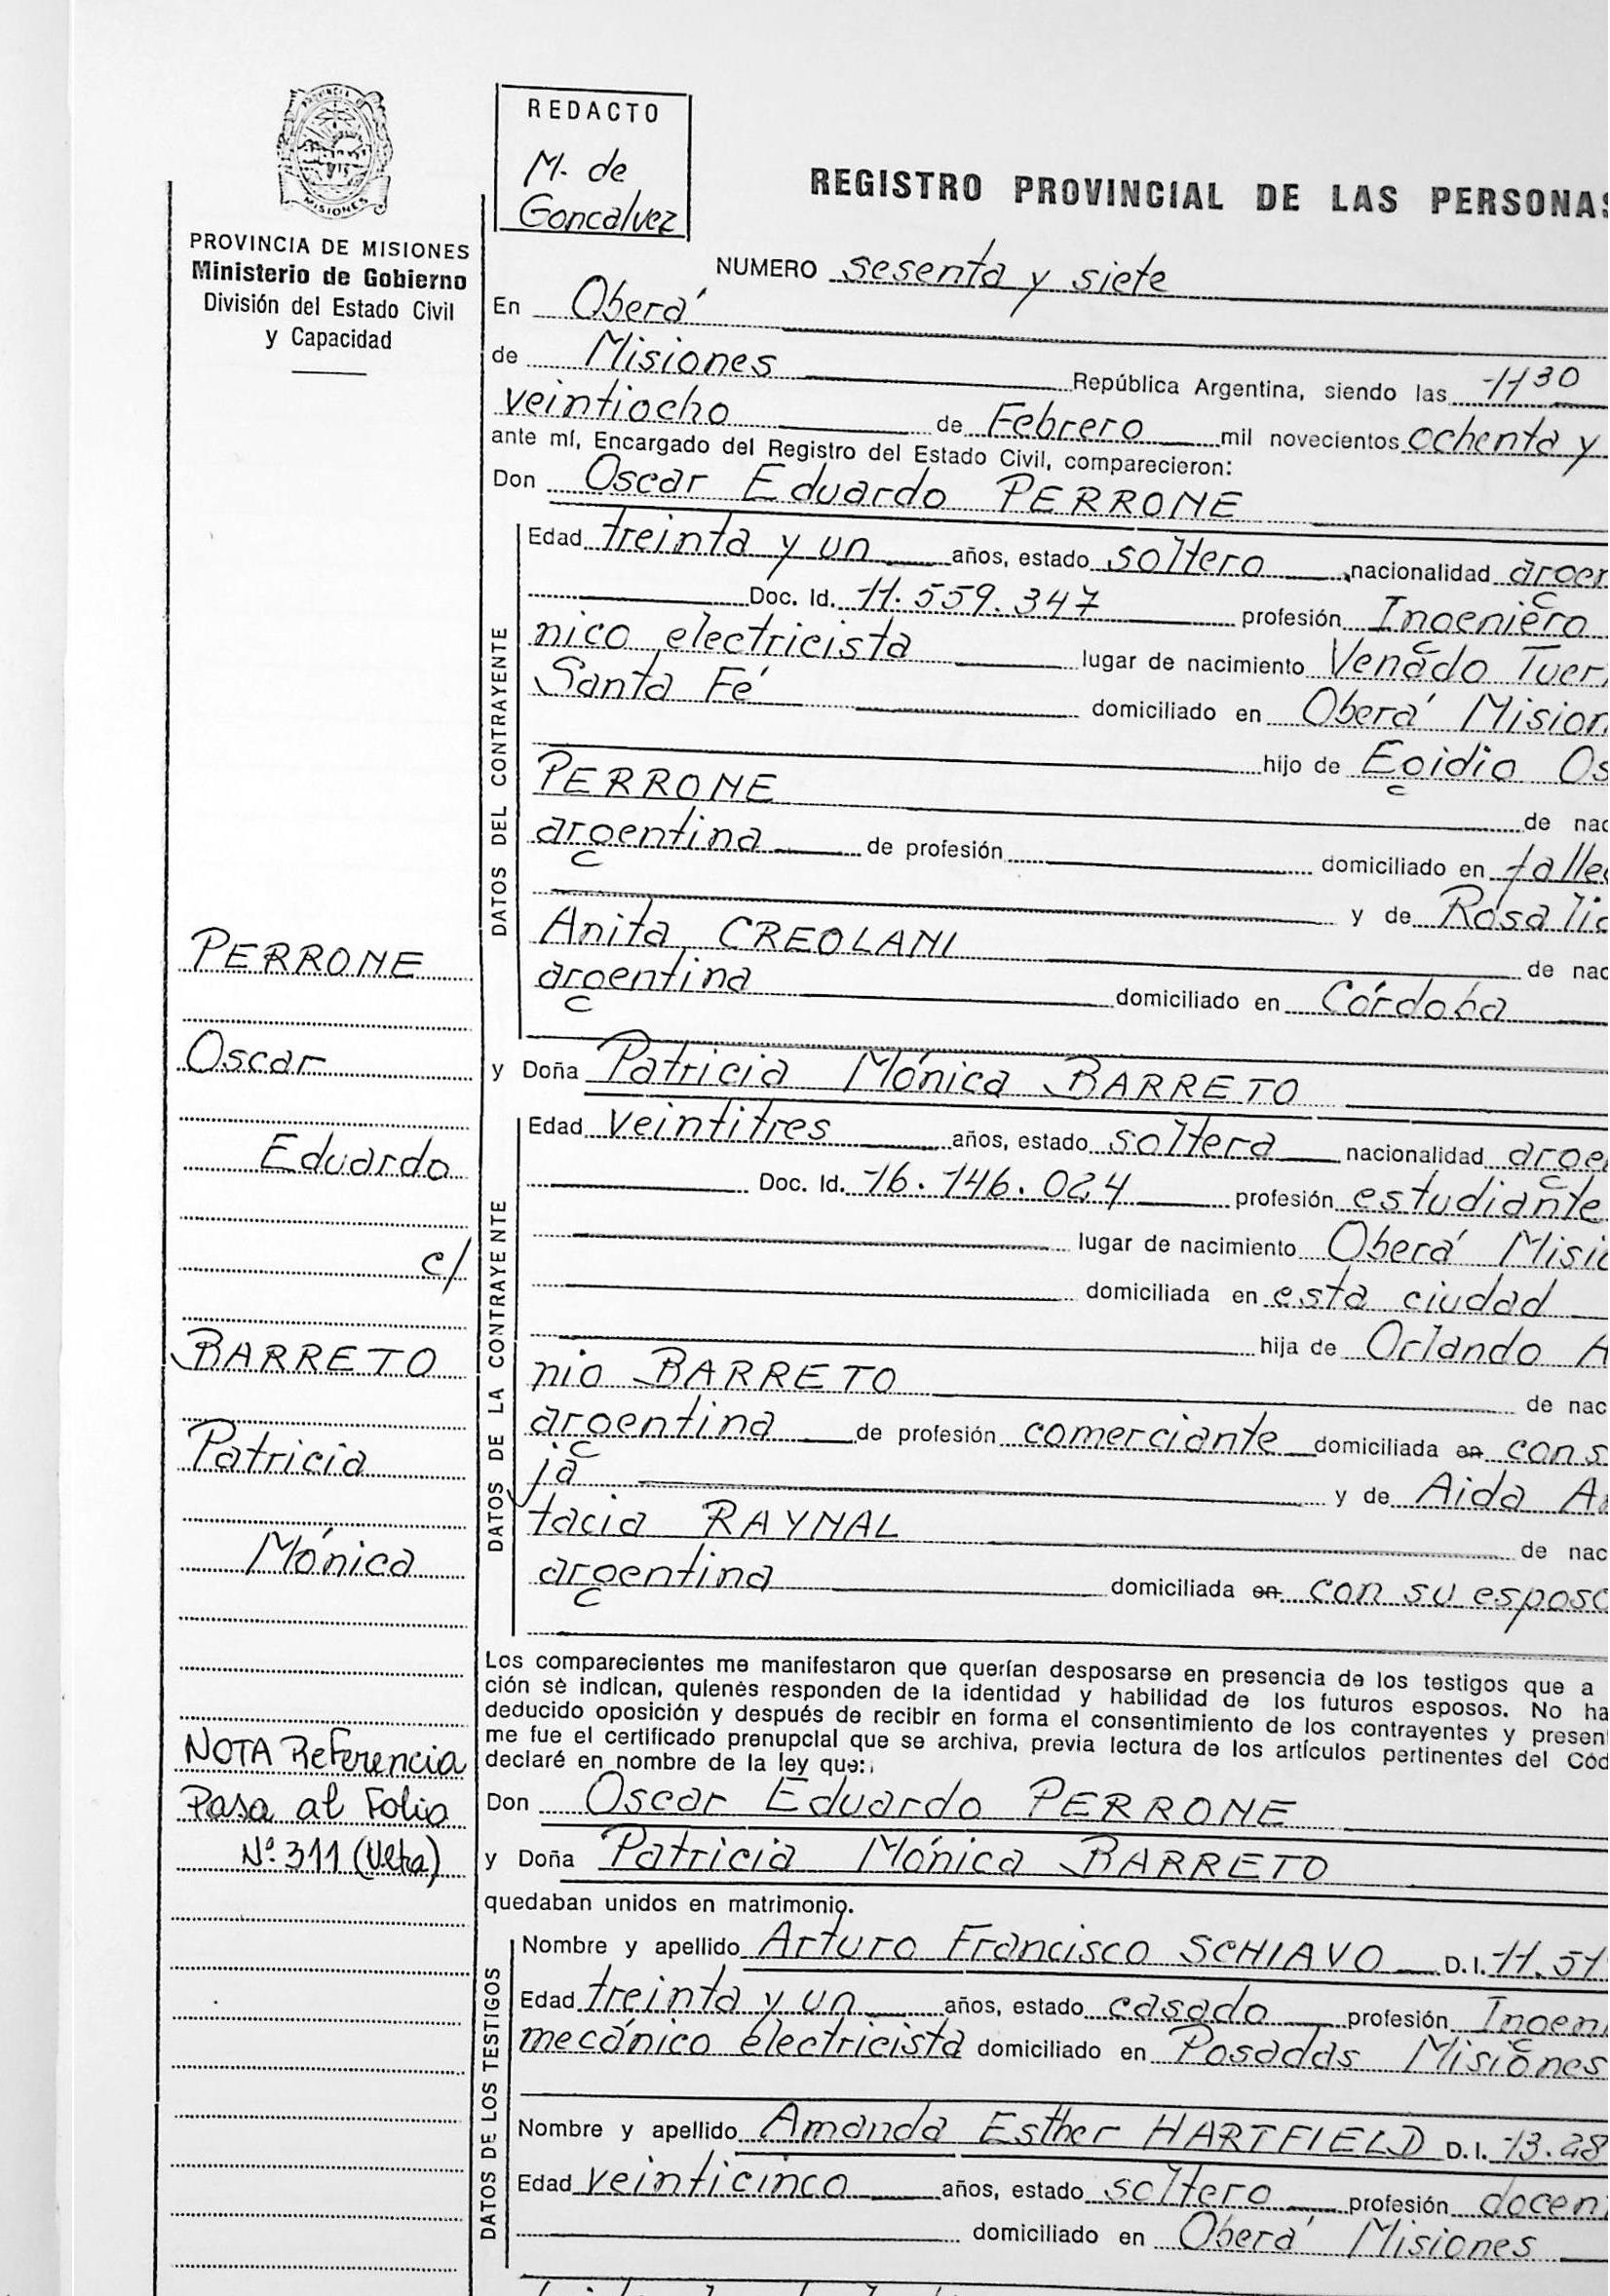 PROVINCIA DE
MISIONES
PROVINCIA DE MISIONES
Ministerio de Gobierno
División del Estado Civil
y Capacidad
REDACTO
M. de
Goncalvez
REGISTRO PROVINCIAL DE LAS PERSONAS
NUMERO sesenta y siete
En Oberá
de Misiones República Argentina, siendo las 11 30
veintiocho de Febrero mil novecientos ochenta y
ante mí, Encargado del Registro del Estado Civil, comparecieron:
Don Oscar Eduardo PERRONE
DATOS DEL CONTRAYENTE
Edad treinta y un años, estado soltero nacionalidad argen
Doc. Id. 11.559.347 profesión Ingeniero
nico electricista lugar de nacimiento Venado Tuer
Santa Fé domiciliado en Oberá Mision
hijo de Egidio Os
PERRONE de nac
argentina de profesión domiciliado en falle
y de Rosalia
Anita CREOLANI de nac
argentina domiciliado en Córdoba
y Doña Patricia Mónica BARRETO
DATOS DE LA CONTRAYENTE
Edad veintitres años, estado soltera nacionalidad argen
Doc. Id. 16.146.024 profesión estudiante
lugar de nacimiento Oberá Misio
domiciliada en esta ciudad
hija de Orlando A
nio BARRETO de nac
argentina de profesión comerciante domiciliada en con s
ja y de Aida A
tacia RAYNAL de nac
argentina domiciliada en con su esposo
Los comparecientes me manifestaron que querían desposarse en presencia de los testigos que a
ción sé indican, quienes responden de la identidad y habilidad de los futuros esposos. No ha
deducido oposición y después de recibir en forma el consentimiento de los contrayentes y present
me fue el certificado prenupcial que se archiva, previa lectura de los artículos pertinentes del Cód
declaré en nombre de la ley que:
Don Oscar Eduardo PERRONE
y Doña Patricia Mónica BARRETO
quedaban unidos en matrimonio.
DATOS DE LOS TESTIGOS
Nombre y apellido Arturo Francisco SCHIAVO D.I. 11.51
Edad treinta y un años, estado casado profesión Ingeni
mecánico electricista domiciliado en Posadas Misiones
Nombre y apellido Amanda Esther HARTFIELD D.I. 13.28
Edad veinticinco años, estado soltero profesión docen
domiciliado en Oberá Misiones
PERRONE
Oscar
Eduardo
c/
BARRETO
Patricia
Mónica
NOTA Referencia
Pasa al Folio
Nº 311 (Vlta)